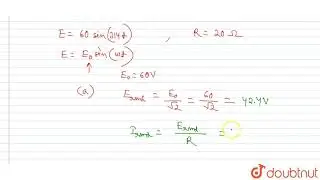 E = 60 sin(314t) , R = 20 Ω
E = E₀ sin(ωt)
E₀ = 60V
(a) Eᵣₘₛ = E₀/√2 = 60/√2 = 42.4V
Iᵣₘₛ = Eᵣₘₛ/R =
doubtnut